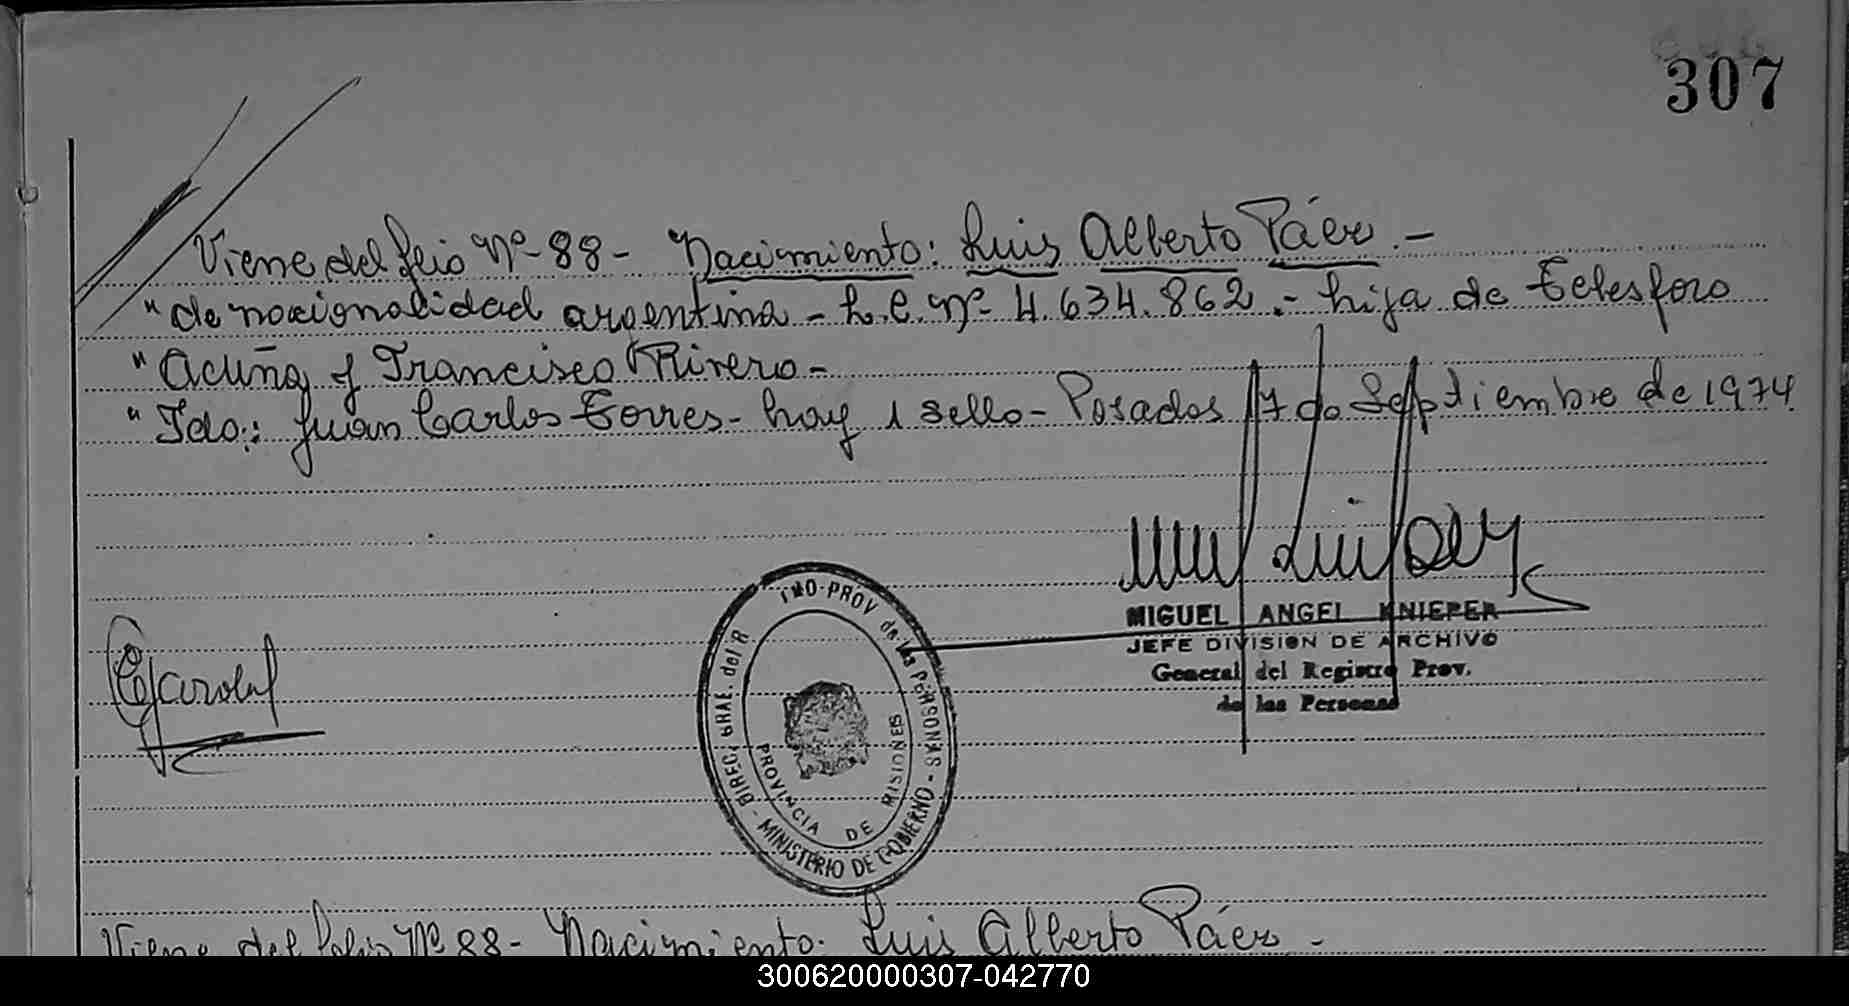 307
Viene del folio Nº 88 - Nacimiento: Luis Alberto Páez. -
"de nacionalidad argentina - L.C. Nº 4.634.862. - hija de Telesforo
"Acuña y Francisca Rivero -
"Fdo: Juan Carlos Torres - hay 1 sello - Posadas 17 de Septiembre de 1974
MIGUEL ANGEL KNIEPER
JEFE DIVISION DE ARCHIVO
General del Registro Prov.
de las Personas
DIREC. GRAL. del R PROV de las PERSONAS - MINISTERIO DE GOBIERNO -
PROVINCIA DE MISIONES
Viene del folio Nº 88 - Nacimiento: Luis Alberto Páez -
300620000307-042770